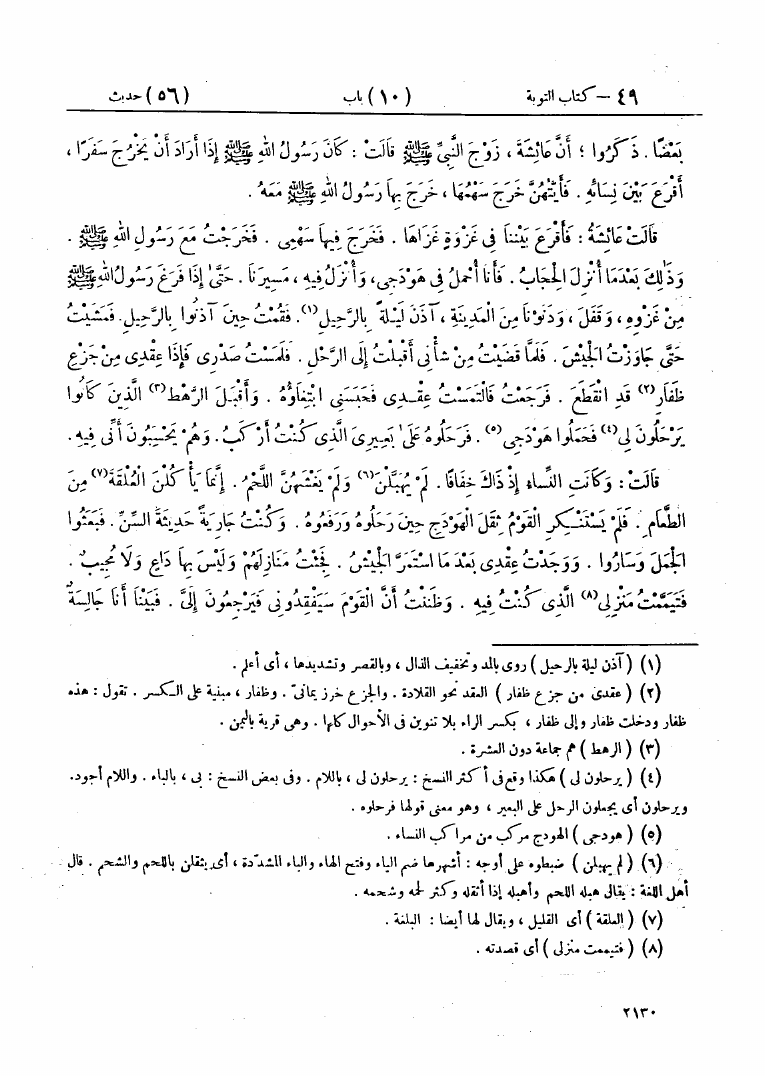 ٤٩ – كتاب التوبة (١٠) باب (٥٦) حديث
بَعْضًا . ذَكَرُوا ؛ أَنَّ عَائِشَةَ ، زَوْجَ النَّبِيِّ ﷺ قَالَتْ : كَانَ رَسُولُ اللهِ ﷺ إِذَا أَرَادَ أَنْ يَخْرُجَ سَفَرًا ،
أَقْرَعَ بَيْنَ نِسَائِهِ . فَأَيَّتُهُنَّ خَرَجَ سَهْمُهَا ، خَرَجَ بِهَا رَسُولُ اللهِ ﷺ مَعَهُ .
قَالَتْ عَائِشَةُ : فَأَقْرَعَ بَيْنَنَا فِي غَزْوَةٍ غَزَاهَا . فَخَرَجَ فِيهَا سَهْمِي . فَخَرَجْتُ مَعَ رَسُولِ اللهِ ﷺ .
وَذٰلِكَ بَعْدَمَا أُنْزِلَ الْحِجَابُ . فَأَنَا أُحْمَلُ فِي هَوْدَجِي، وَأُنْزَلُ فِيهِ ، مَسِيرَنَا . حَتَّىٰ إِذَا فَرَغَ رَسُولُ اللهِ ﷺ
مِنْ غَزْوِهِ ، وَقَفَلَ ، وَدَنَوْنَا مِنَ الْمَدِينَةِ ، آذَنَ لَيْلَةً بِالرَّحِيلِ(١). فَقُمْتُ حِينَ آذَنُوا بِالرَّحِيلِ. فَمَشَيْتُ
حَتَّىٰ جَاوَزْتُ الْجَيْشَ . فَلَمَّا قَضَيْتُ مِنْ شَأْنِي أَقْبَلْتُ إِلَى الرَّحْلِ . فَلَمَسْتُ صَدْرِي فَإِذَا عِقْدِي مِنْ جَزْعِ
ظَفَارِ(٢) قَدِ انْقَطَعَ . فَرَجَعْتُ فَالْتَمَسْتُ عِقْدِي فَحَبَسَنِي ابْتِغَاؤُهُ . وَأَقْبَلَ الرَّهْطُ(٣) الَّذِينَ كَانُوا
يَرْحَلُونَ لِي(٤) فَحَمَلُوا هَوْدَجِي(٥) . فَرَحَلُوهُ عَلَىٰ بَعِيرِيَ الَّذِي كُنْتُ أَرْكَبُ. وَهُمْ يَحْسِبُونَ أَنِّي فِيهِ.
قَالَتْ : وَكَانَتِ النِّسَاءُ إِذْ ذَاكَ خِفَافًا . لَمْ يُهَبَّلْنَ(٦) وَلَمْ يَغْشَهُنَّ اللَّحْمُ . إِنَّمَا يَأْكُلْنَ الْعُلْقَةَ(٧) مِنَ
الطَّعَامِ . فَلَمْ يَسْتَنْكِرِ الْقَوْمُ ثِقَلَ الْهَوْدَجِ حِينَ رَحَلُوهُ وَرَفَعُوهُ . وَكُنْتُ جَارِيَةً حَدِيثَةَ السِّنِّ . فَبَعَثُوا
الْجَمَلَ وَسَارُوا . وَوَجَدْتُ عِقْدِي بَعْدَ مَا اسْتَمَرَّ الْجَيْشُ . فَجِئْتُ مَنَازِلَهُمْ وَلَيْسَ بِهَا دَاعٍ وَلَا مُجِيبٌ .
فَتَيَمَّمْتُ مَنْزِلِي(٨) الَّذِي كُنْتُ فِيهِ . وَظَنَنْتُ أَنَّ الْقَوْمَ سَيَفْقِدُونِي فَيَرْجِعُونَ إِلَيَّ . فَبَيْنَا أَنَا جَالِسَةٌ
(١) ( آذن ليلة بالرحيل ) روى بالمد وتخفيف الذال ، وبالقصر وتشديدها ، أى أعلم .
(٢) ( عقدى من جزع ظفار ) العقد نحو القلادة . والجزع خرز يمانىّ . وظفار ، مبنية على الكسر . تقول : هذه
ظفار ودخلت ظفار وإلى ظفار ، بكسر الراء بلا تنوين فى الأحوال كلها . وهى قرية باليمن .
(٣) ( الرهط ) هم جماعة دون العشرة .
(٤) ( يرحلون لى ) هكذا وقع فى أكثر النسخ : يرحلون لى ، باللام . وفى بعض النسخ : بى ، بالباء . واللام أجود.
ويرحلون أى يجعلون الرحل على البعير ، وهو معنى قولها فرحلوه .
(٥) ( هودجى ) الهودج مركب من مراكب النساء .
(٦) ( لم يهبلن ) ضبطوه على أوجه : أشهرها ضم الياء وفتح الهاء والباء المشدّدة ، أى يثقلن باللحم والشحم . قال
أهل اللغة : يقال هبله اللحم وأهبله إذا أثقله وكثر لحمه وشحمه .
(٧) ( العلقة ) أى القليل ، ويقال لها أيضا : البلغة .
(٨) ( فتيممت منزلى ) أى قصدته .
٢١٣٠